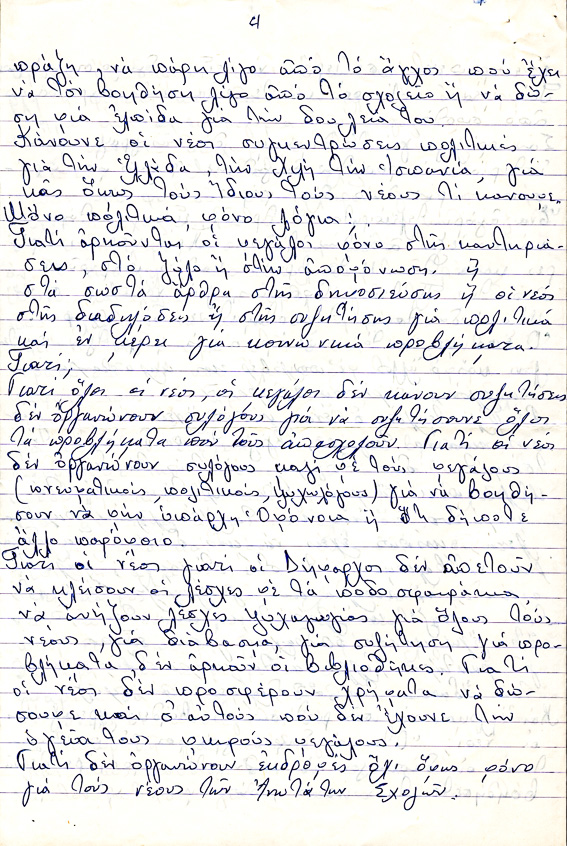 4
πράξη, νὰ πάρη λίγο ἀπό τό ἄγχος πού ἔχει
νὰ τόν βοηθήση λίγο ἀπό τό σχολεῖο ἤ νὰ δώ-
ση μιά ἐλπίδα γιά τήν δουλειά του.
Κάνουνε οἱ νέοι συγκεντρώσεις πολιτικές
γιά τήν Ἑλλάδα, τήν Χιλή τήν Ἱσπανία, γιά
μᾶς ὅμως τούς ἴδιους τούς νέους τί κάνουμε.
Μόνο πολιτικά, μόνο λόγια!
Γιατί ἀρκοῦνται οἱ μεγάλοι μόνο στῆς καυτηριά-
σεις, στό ξύλο ἤ στήν ἀπομόνωση. ἤ
στά σωστά ἄρθρα στῆς δημοσιεύσης ἤ οἱ νέοι
στῆς διαδηλώσεις ἤ στῆς συζητήσης γιά πολιτικά
καί ἐν μέρει γιά κοινωνικά προβλήματα.
Γιατί;
Γιατί ὅλοι οἱ νέοι, οἱ μεγάλοι δέν κάνουν συζητήσεις
δέν ὀργανώνουν συλόγους γιά νὰ συζητήσουνε ὅλοι
τά προβλήματα πού τούς ἀπασχολοῦν. Γιατί οἱ νέοι
δέν ὀργανώνουν συλόγους μαζί μέ τούς μεγάλους
(πνευματικούς, πολιτικούς, ψυχολόγους) γιά νὰ βοηθή-
σουν νὰ μήν ὑπάρχη Ὁμόνοια ἤ ὅτι δήποτε
ἄλλο παρόμοιο.
Γιατί οἱ νέοι γιατί οἱ Δήμαρχοι δέν ἀπετοῦν
νὰ κλείσουν οἱ λέσχες μέ τά ποδοσφαιράκια
νὰ ἀνήξουν λέσχες ψυχαγωγίας γιά ὅλους τούς
νέους, γιά διάβασμα, γιά συζήτηση γιά προ-
βλήματα δέν ἀρκοῦν οἱ βιβλιοθῆκες. Γιατί
οἱ νέοι δέν προσφέρουν χρήματα νὰ δώ-
σουμε καί σ'αὐτούς πού δέν ἔχουνε τήν
ὑγεῖα τους μικρούς μεγάλους.
Γιατί δέν ὀργανώνουν ἐκδρομές ὄχι ὅμως μόνο
γιά τούς νέους τῶν Ἀνωτάτων Σχολῶν.